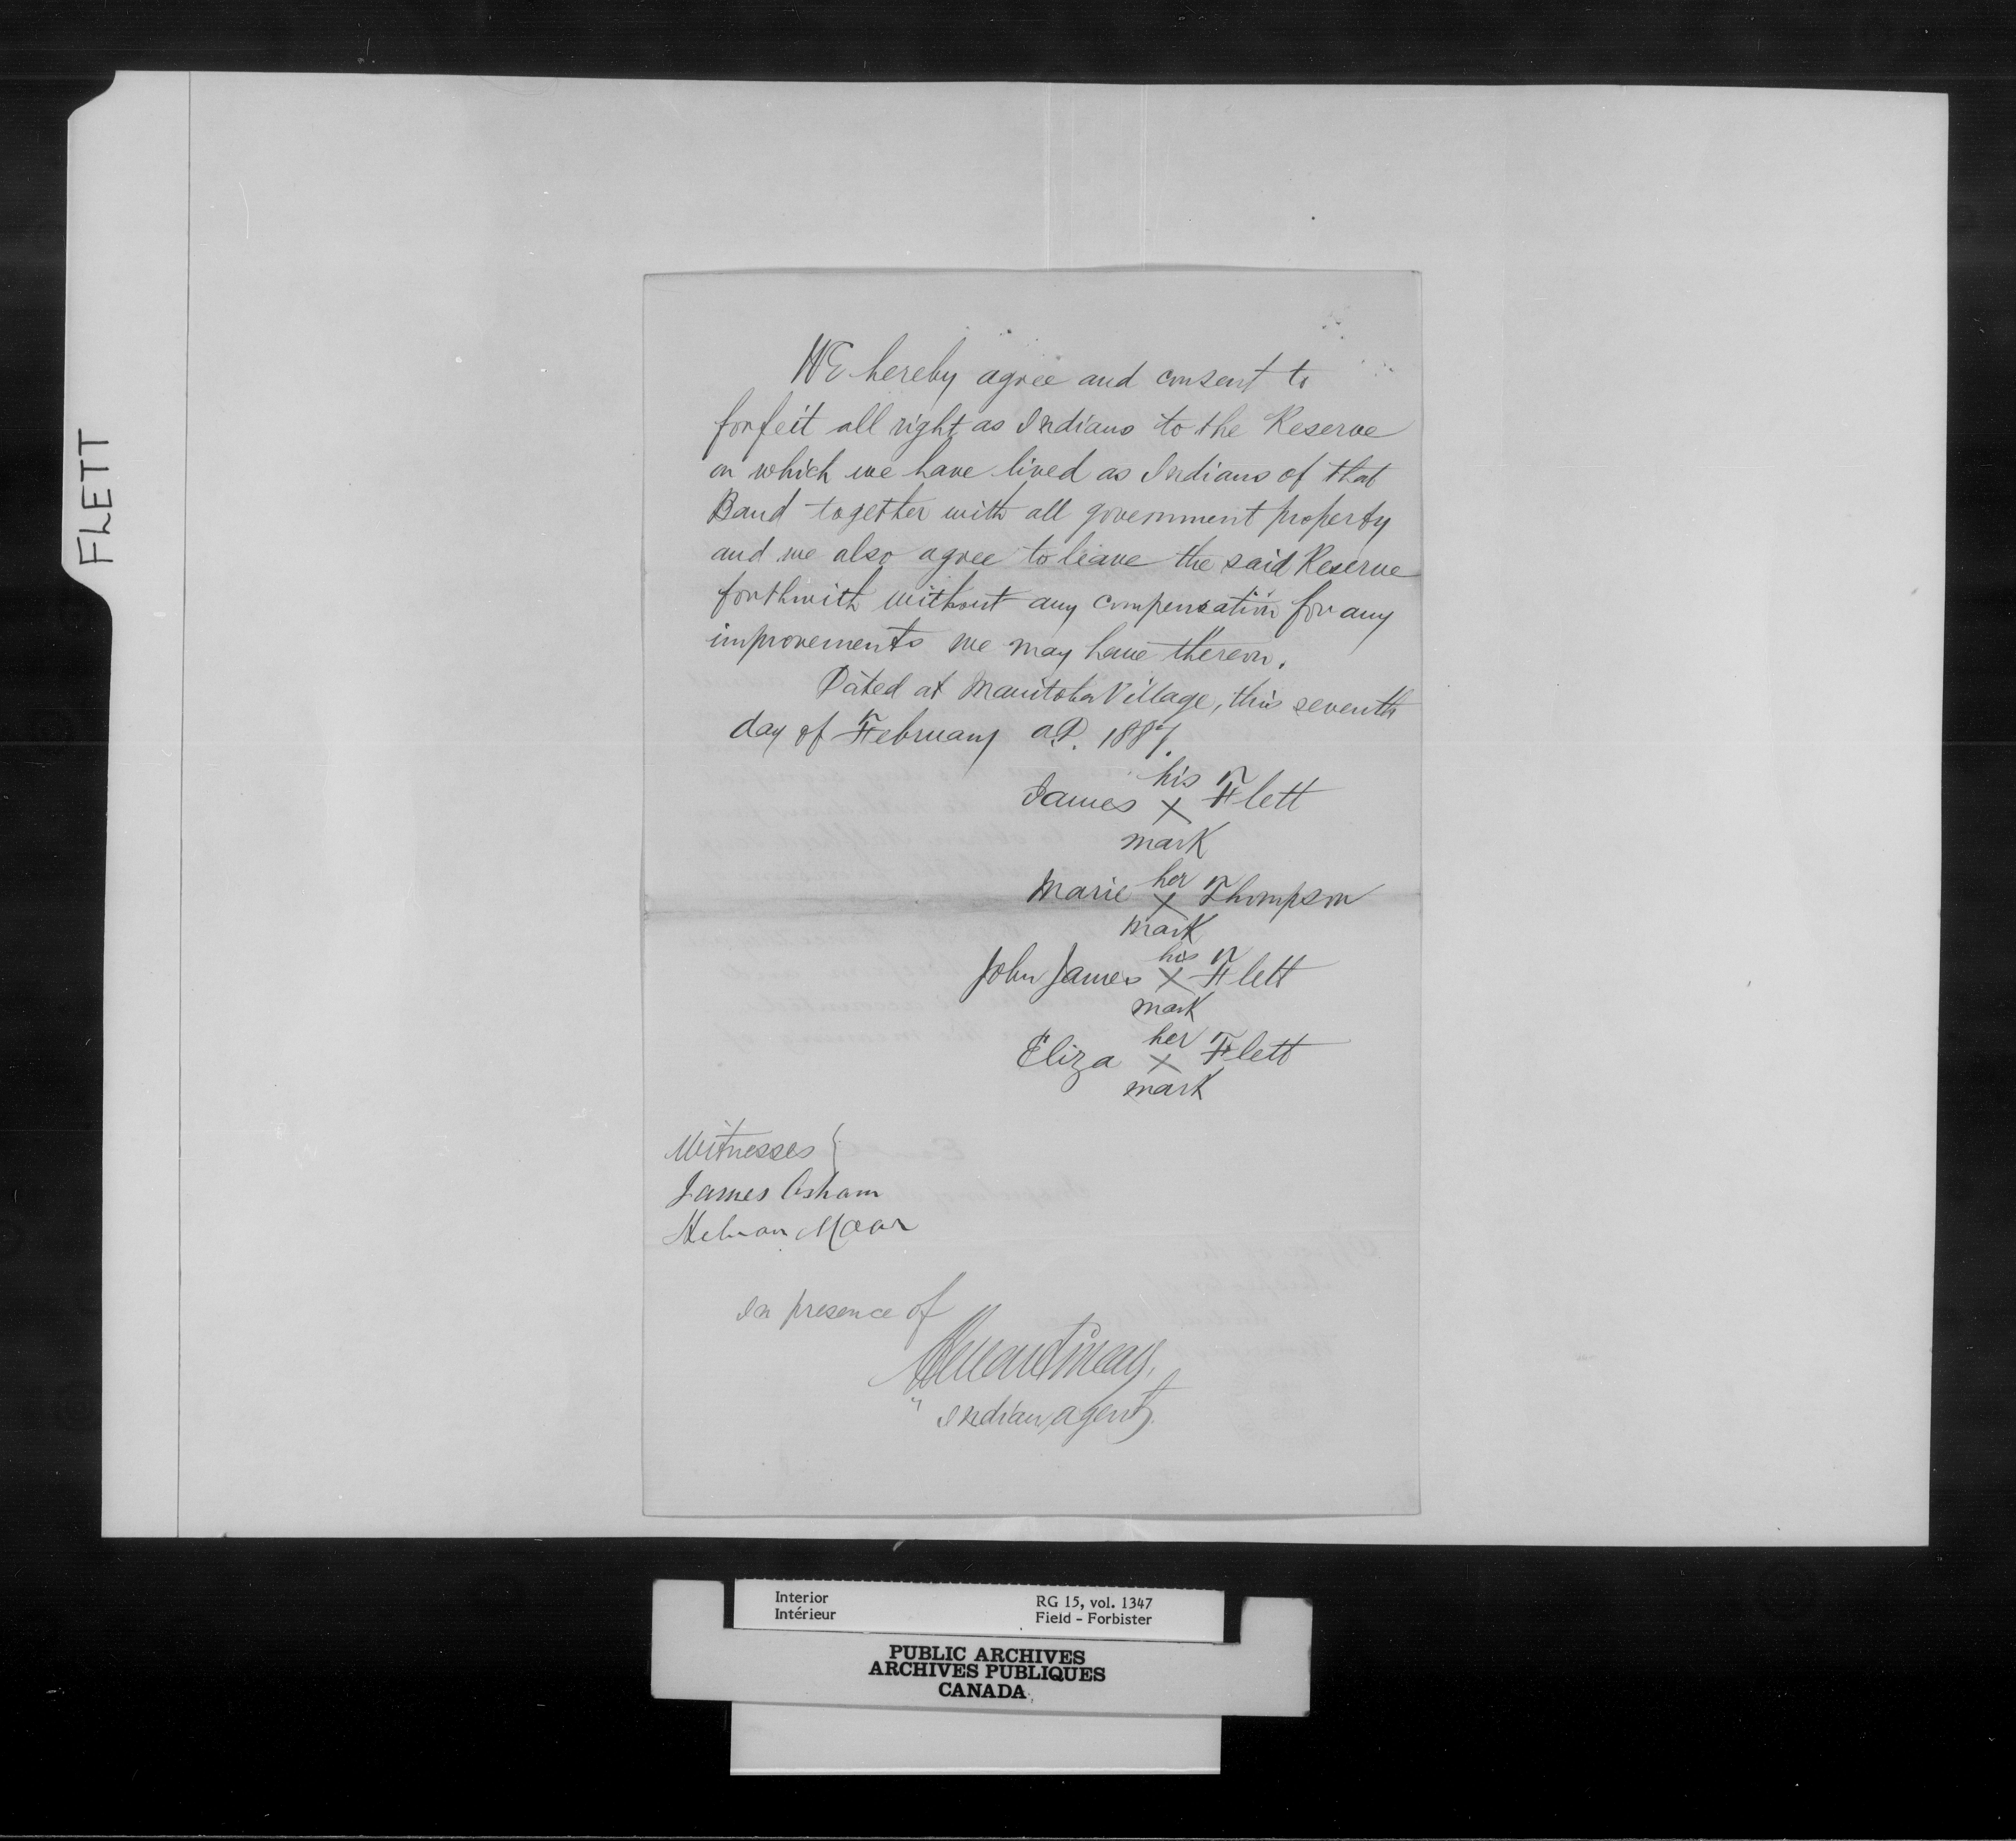 FLETT
WE hereby agree and consent to
forfeit all right as Indians to the Reserve
on which we have lived as Indians of that
Band together with all government property
and we also agree to leave the said Reserve
forthwith without any compensation for any
improvements we may have thereon.
Dated at Manitoba Village, this seventh
day of February A.D. 1887.
his
James X Flett
mark
her
Marie X Thompson
mark
his
John James X Flett
mark
her
Eliza X Flett
mark
Witnesses {
James Asham
Moar
In presence of
Indian agent
Interior RG 15, vol. 1347
Intérieur Field - Forbister
PUBLIC ARCHIVES
ARCHIVES PUBLIQUES
CANADA